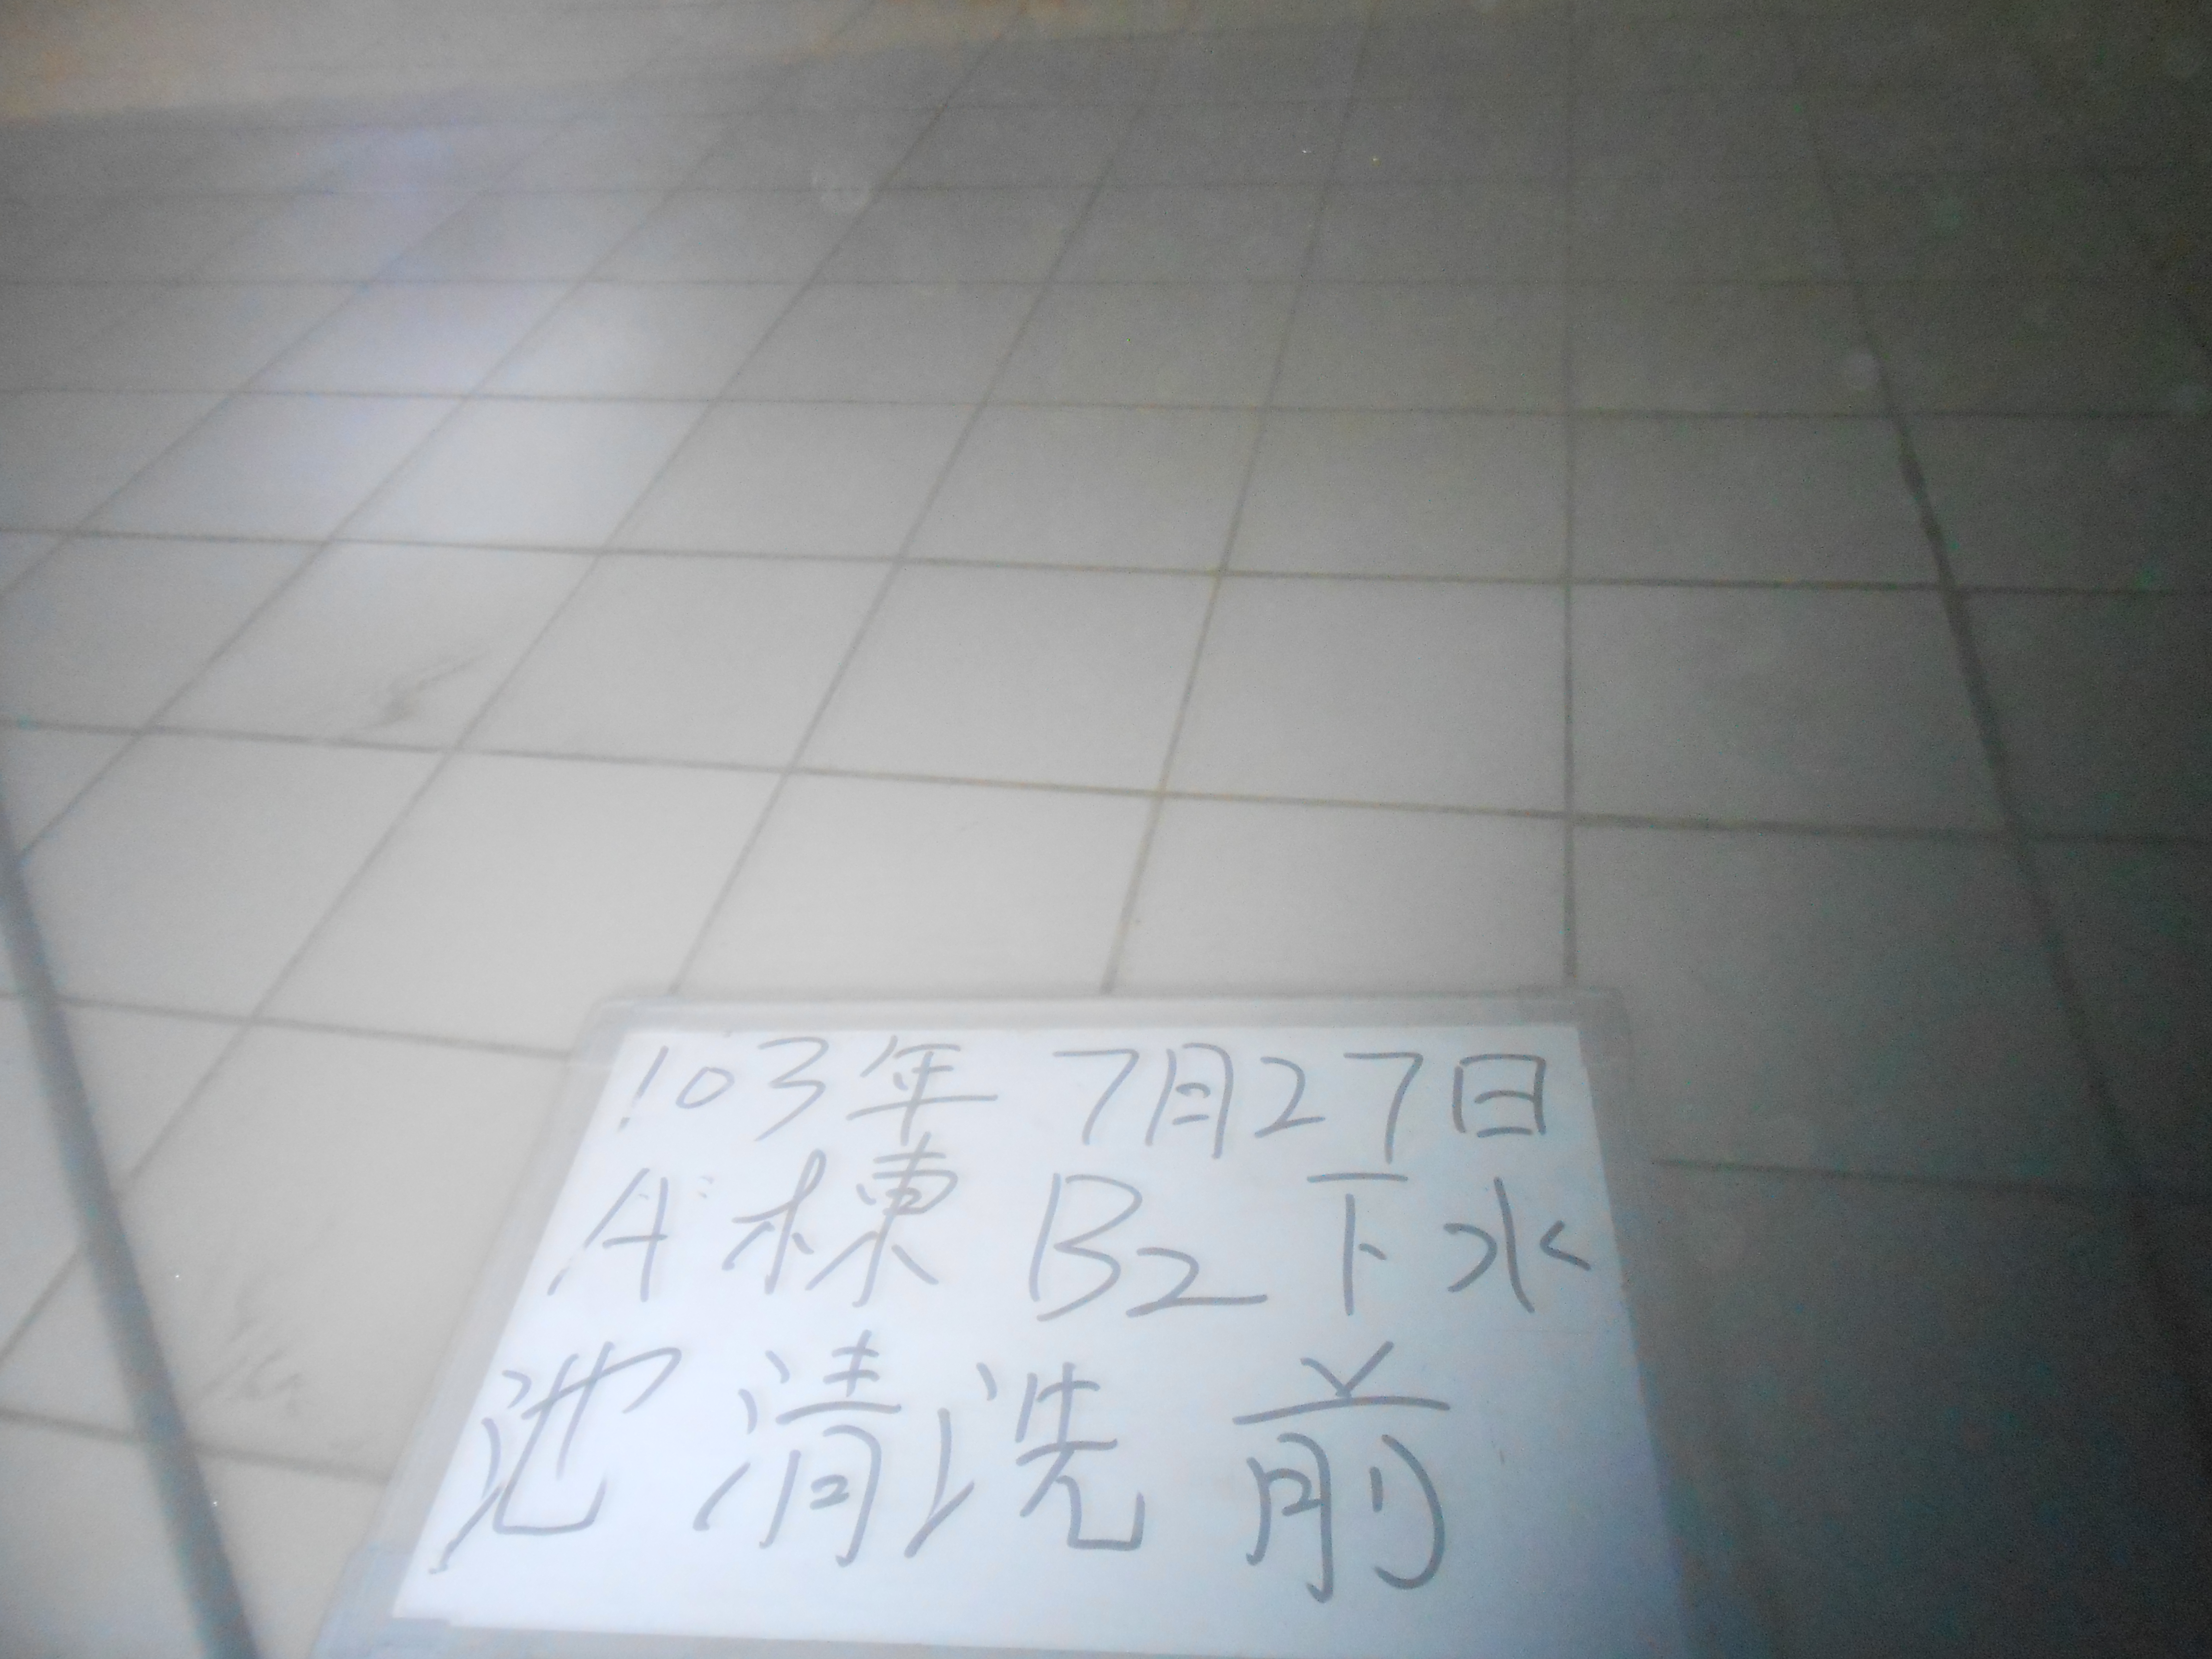 103年7月27日
A棟 B2下水
池清洗前